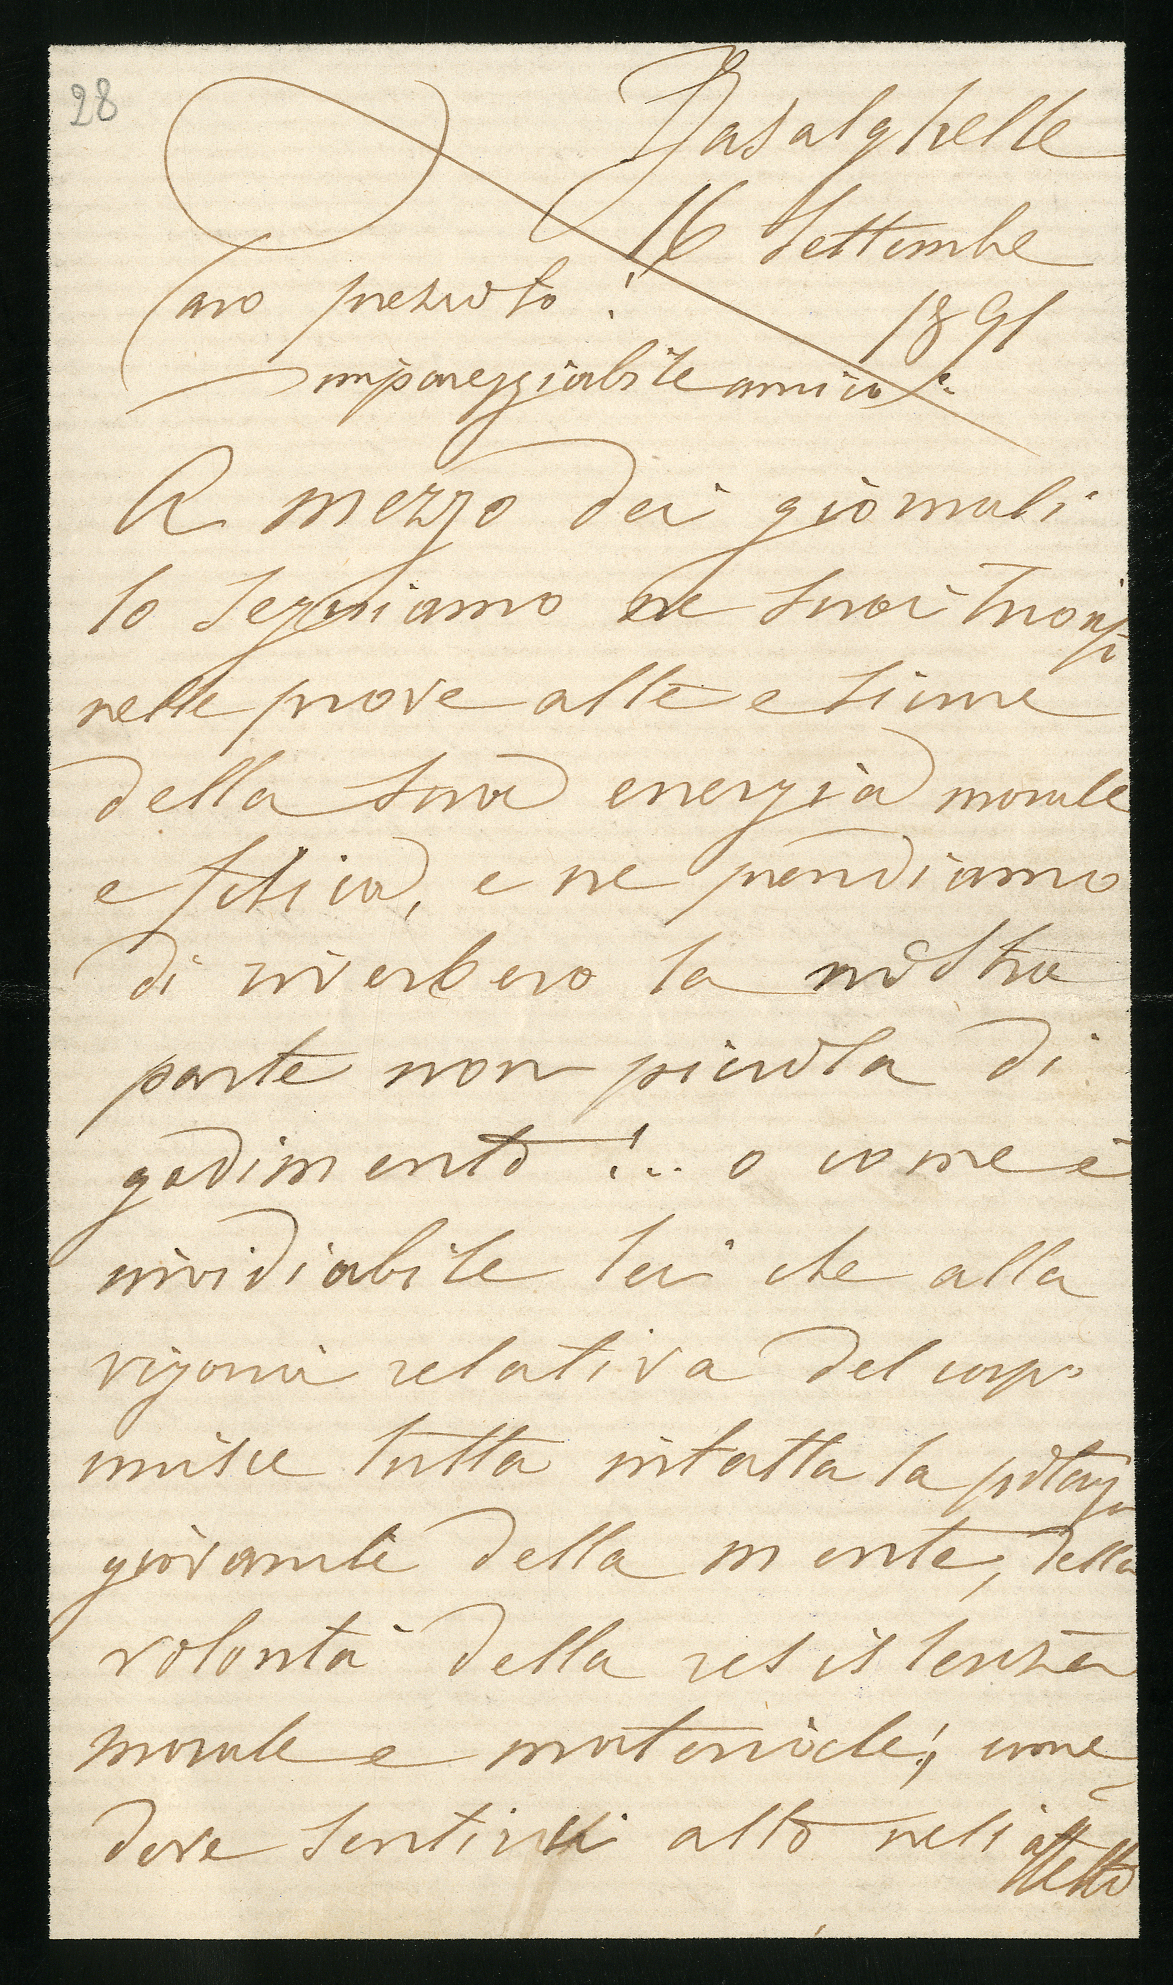 28
Basalghelle
16 Settembre
1891
Caro prezioso!
impareggiabile amico:
A mezzo dei giornali
lo seguiamo ne suoi trionfi
nelle prove alte e
della sua energia morale
e fisica, e ne prendiamo
di riverbero la nostra
parte non piccola di
godimento!.. o come è
invidiabile lei che alla
vigoria relativa del corpo
unisce tutta intatta la potenza
giovanile della mente, della
volontà della resistenza
morale e materiale!, come
deve sentirsi alto nell'affetto